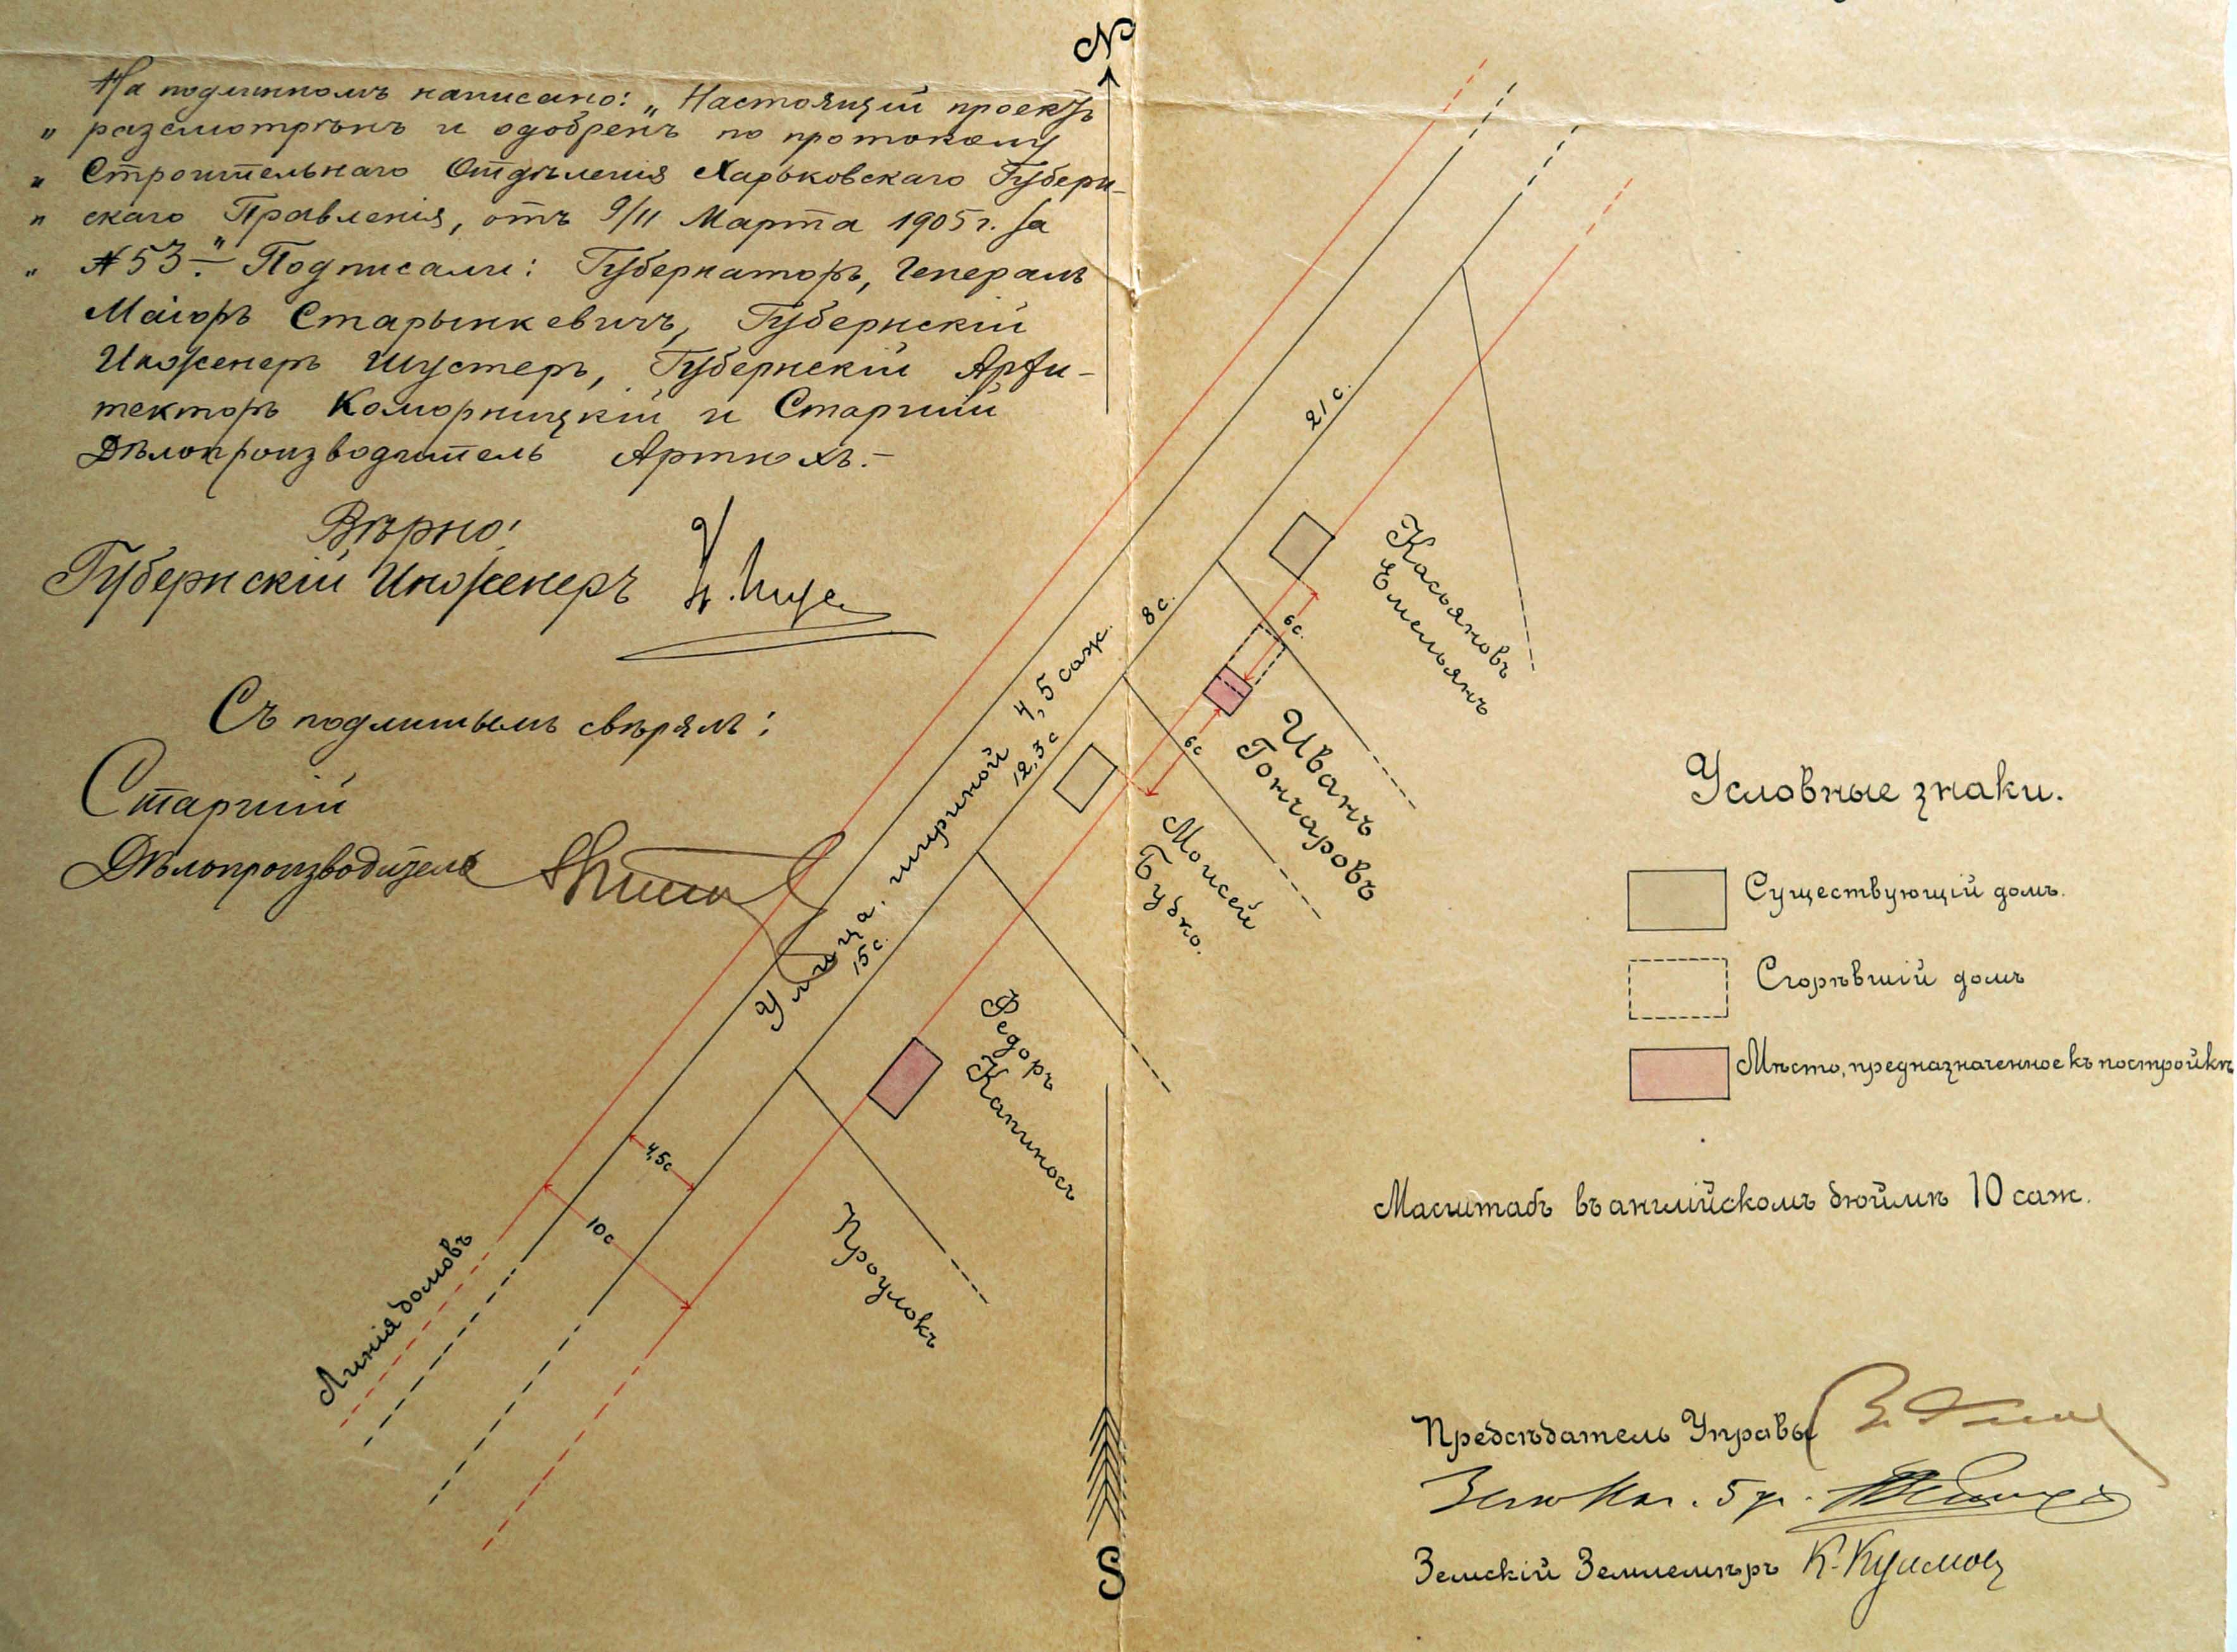 N
На подлинномъ написано: „Настоящій проектъ
„ разсмотрѣнъ и одобренъ по протоколу
„ Строительнаго Отдѣленія Харьковскаго Губерн-
„ скаго Правленія, отъ 9/11 Марта 1905 г. за
„ № 53." Подписали: Губернаторъ, Генералъ
Маіоръ Старынкевичъ, Губернскій
Инженеръ Шустеръ, Губернскій Архи-
текторъ Коморницкій и Старшій
Дѣлопроизводитель Артюхъ.-
Вѣрно:
Губернскій Инженеръ
Съ подлиннымъ свѣрялъ:
Старшій
Дѣлопроизводитель
21 с.
8 с.
12,3 с
15 с.
Улица, шириной 4,5 саж.
6 с.
6 с
4,5 с
10 с
Касьяновъ
Емельянъ
Иванъ
Гончаровъ
Моисей
Бубно.
Федоръ
Капиносъ
Проулокъ
Линія домовъ
Условные знаки.
Существующій домъ.
Сгорѣвшій домъ
Мѣсто, предназначенное къ постройкѣ
Масштабъ въ англійскомъ дюймѣ 10 саж.
Предсѣдатель Управы
Зем. Нач. 5 у.
Земскій Землемѣръ К.
S